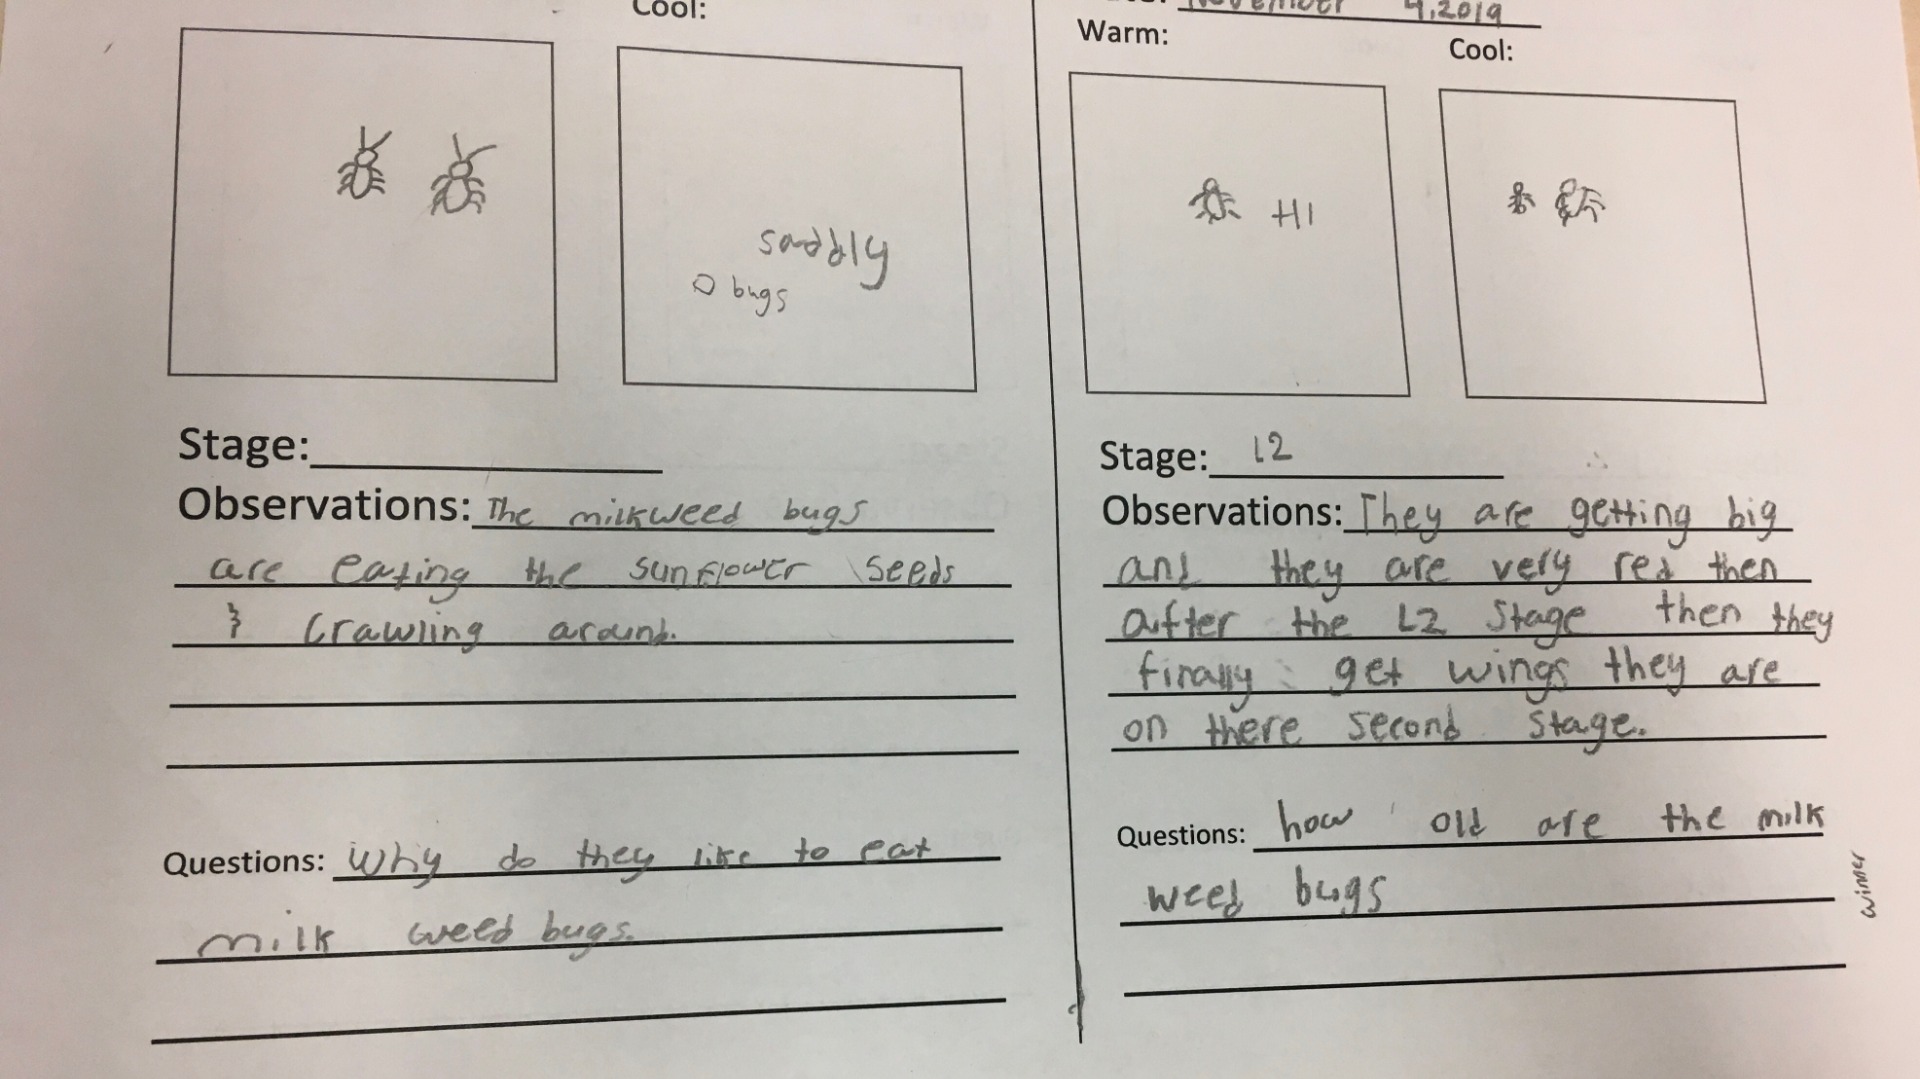 Cool:
saddly
0 bugs
Stage:
Observations: The milkweed bugs
are eating the sunflower seeds
& Crawling around.
Questions: Why do they like to eat
milk weed bugs.
November 4, 2019
Warm:
Cool:
HI
Stage: L2
Observations: They are getting big
and they are very red then
after the L2 Stage then they
finally get wings they are
on there second stage.
Questions: how old are the milk
weed bugs
winner